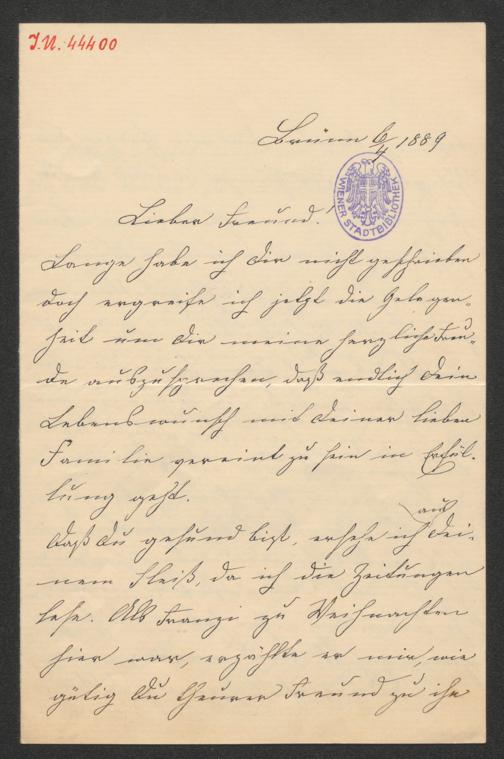 I.N. 44400
Brünn 6/4 1889
WIENER STADTBIBLIOTHEK
Lieber Freund!
Lange habe ich Dir nicht geschrieben
doch ergreife ich jetzt die Gelegen-
heit um Dir meine herzliche Freu-
de auszusprechen, daß endlich Dein
Lebenswunsch mit Deiner lieben
Familie vereint zu sein in Erfül-
lung geht.
Daß Du gesund bist, ersehe ich aus Dei-
nem Fleiß, da ich die Zeitungen
lese. Als Franzi zu Weihnachten
hier war, erzählte er mir, wie
gütig Du theurer Freund zu ihm